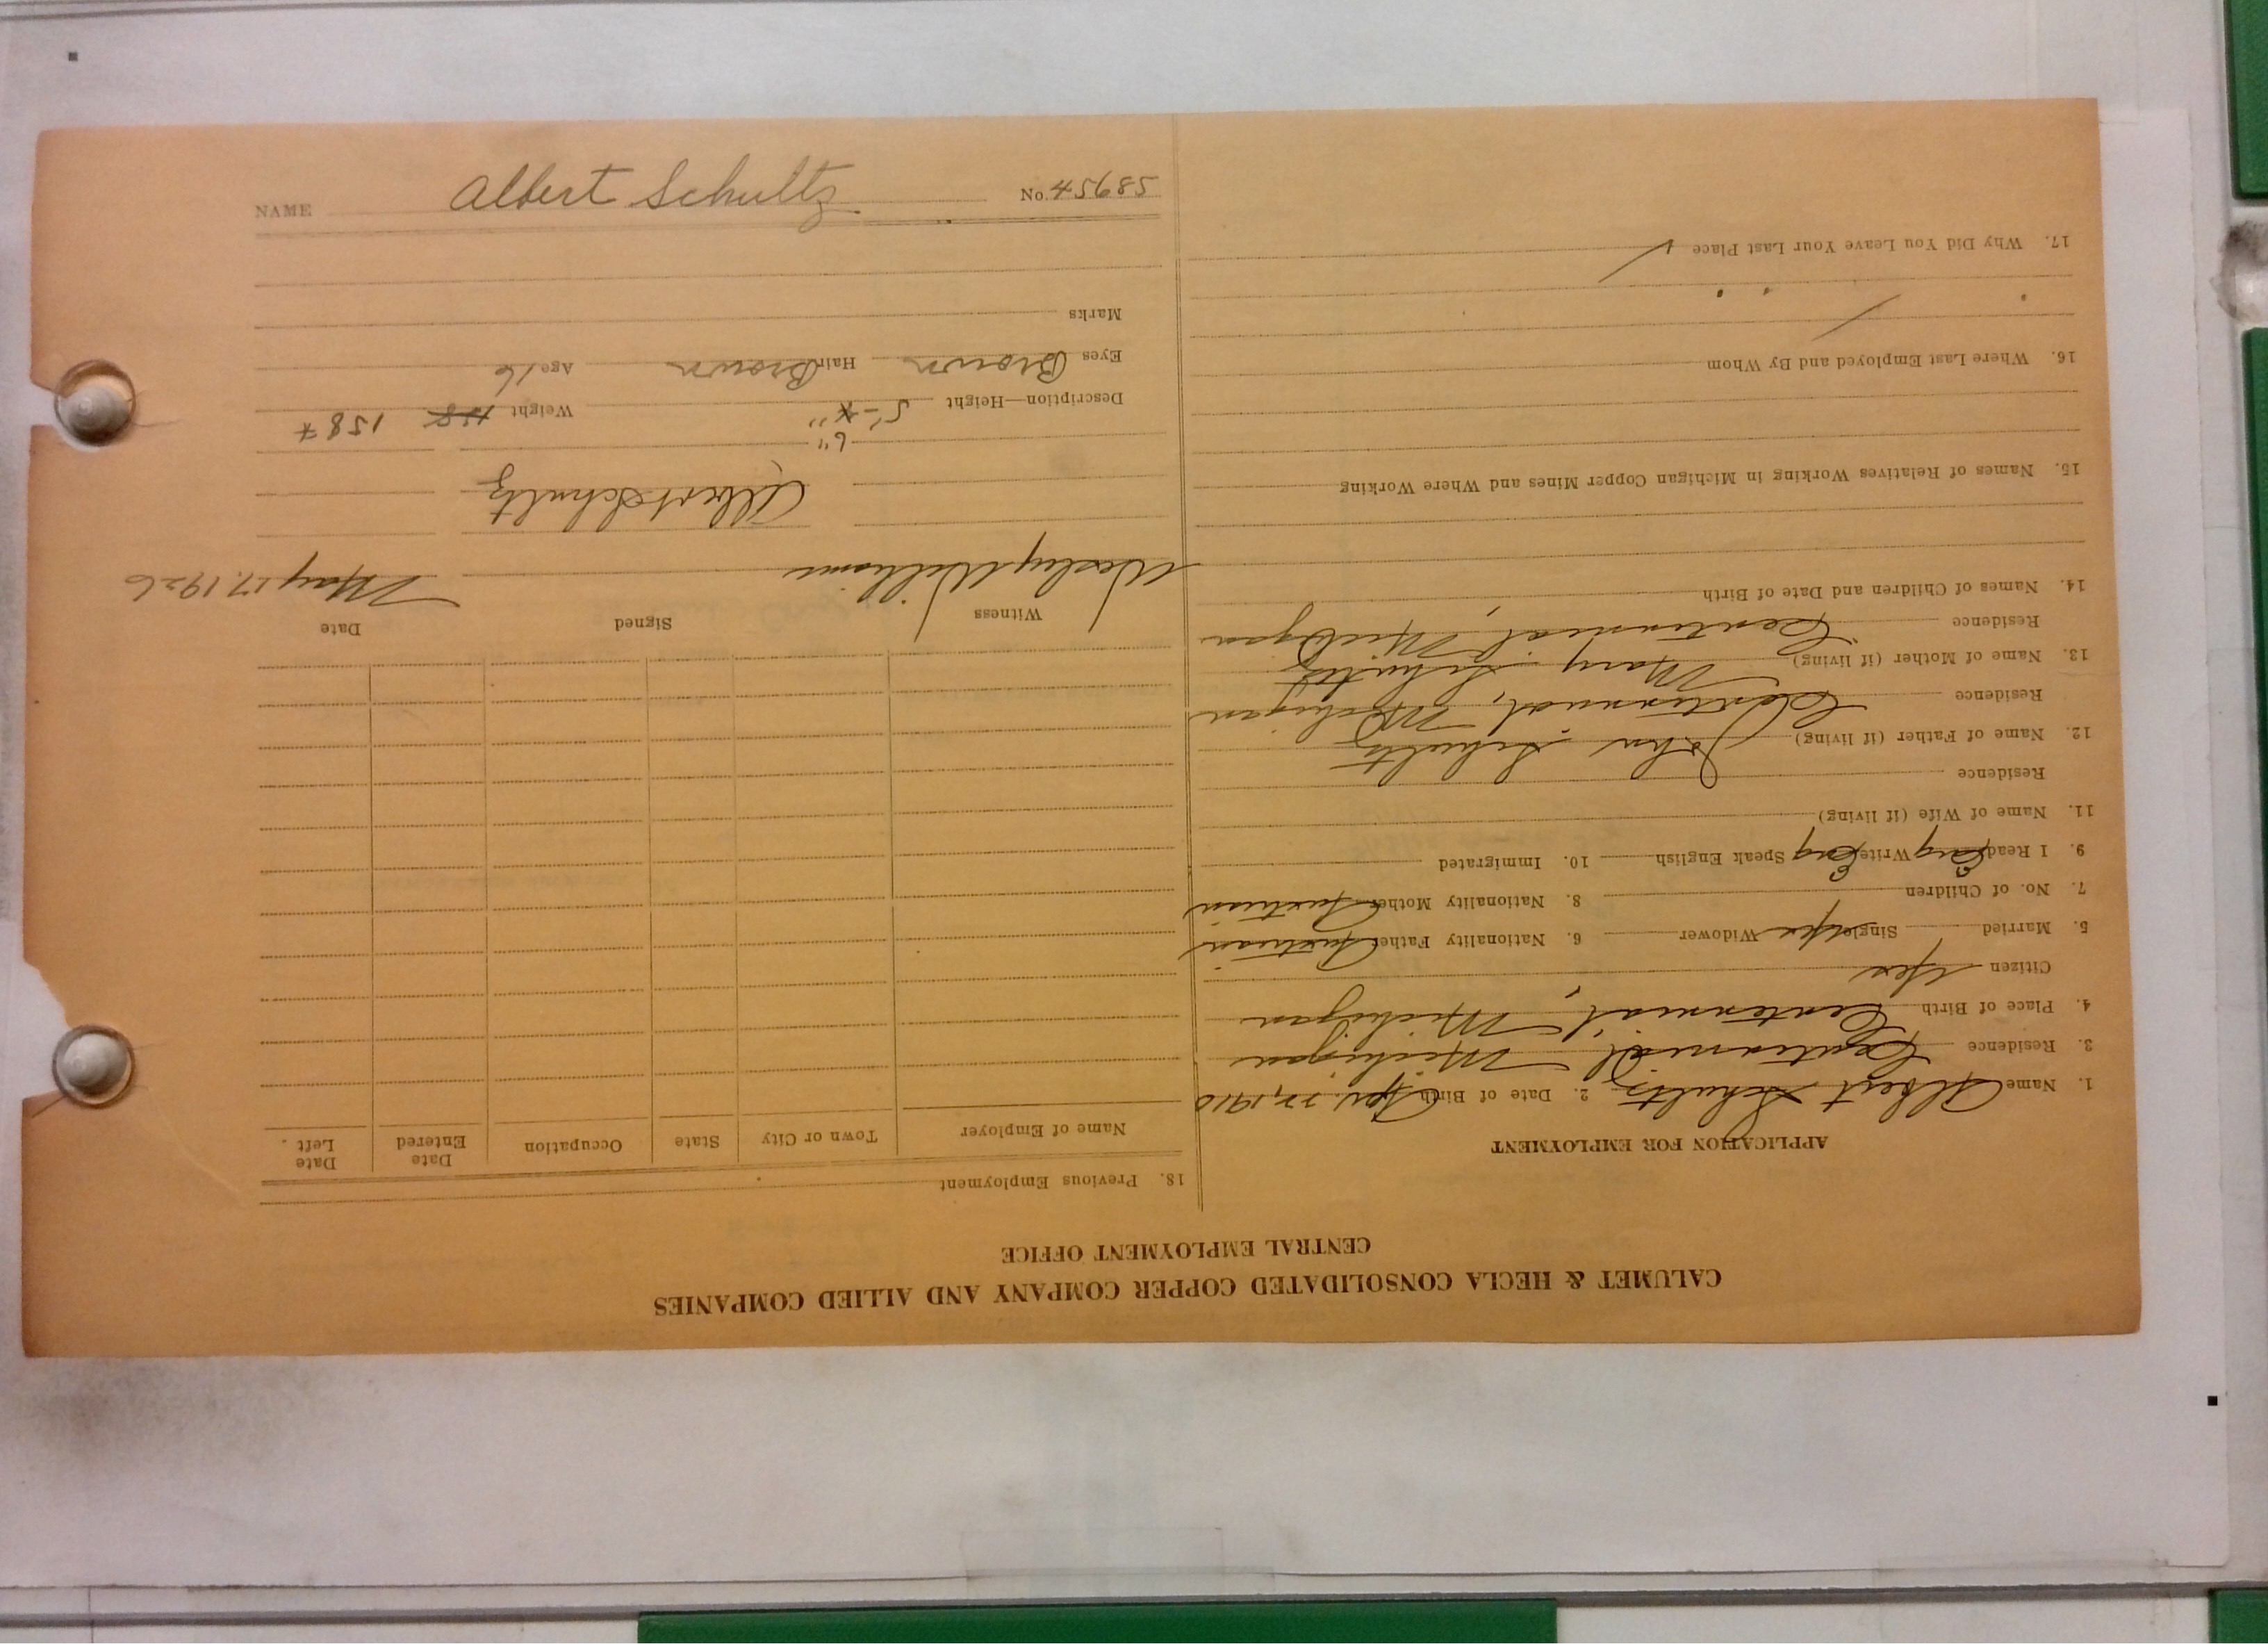 CALUMET & HECLA CONSOLIDATED COPPER COMPANY AND ALLIED COMPANIES
CENTRAL EMPLOYMENT OFFICE
APPLICATION FOR EMPLOYMENT
1. Name Albert Schultz 2. Date of Birth 1910
3. Residence Centennial, Michigan
4. Place of Birth Centennial, Michigan
Citizen Yes
5. Married Single yes Widower 6. Nationality Father Austrian
7. No. of Children 8. Nationality Mother Austrian
9. I Read Eng Write Eng Speak English 10. Immigrated
11. Name of Wife (if living)
Residence
12. Name of Father (if living) John Schultz
Residence Centennial, Michigan
13. Name of Mother (if living) Mary Schultz
Residence Centennial, Michigan
14. Names of Children and Date of Birth
15. Names of Relatives Working in Michigan Copper Mines and Where Working
16. Where Last Employed and By Whom
17. Why Did You Leave Your Last Place
18. Previous Employment
Name of Employer Town or City State Occupation Date Entered Date Left
Witness Signed Date
Wesley Williams May 17, 1926
Albert Schultz
6"
Description—Height 5'- Weight 158 #
Eyes Brown Hair Brown Age 16
Marks
NAME Albert Schultz No. 45685